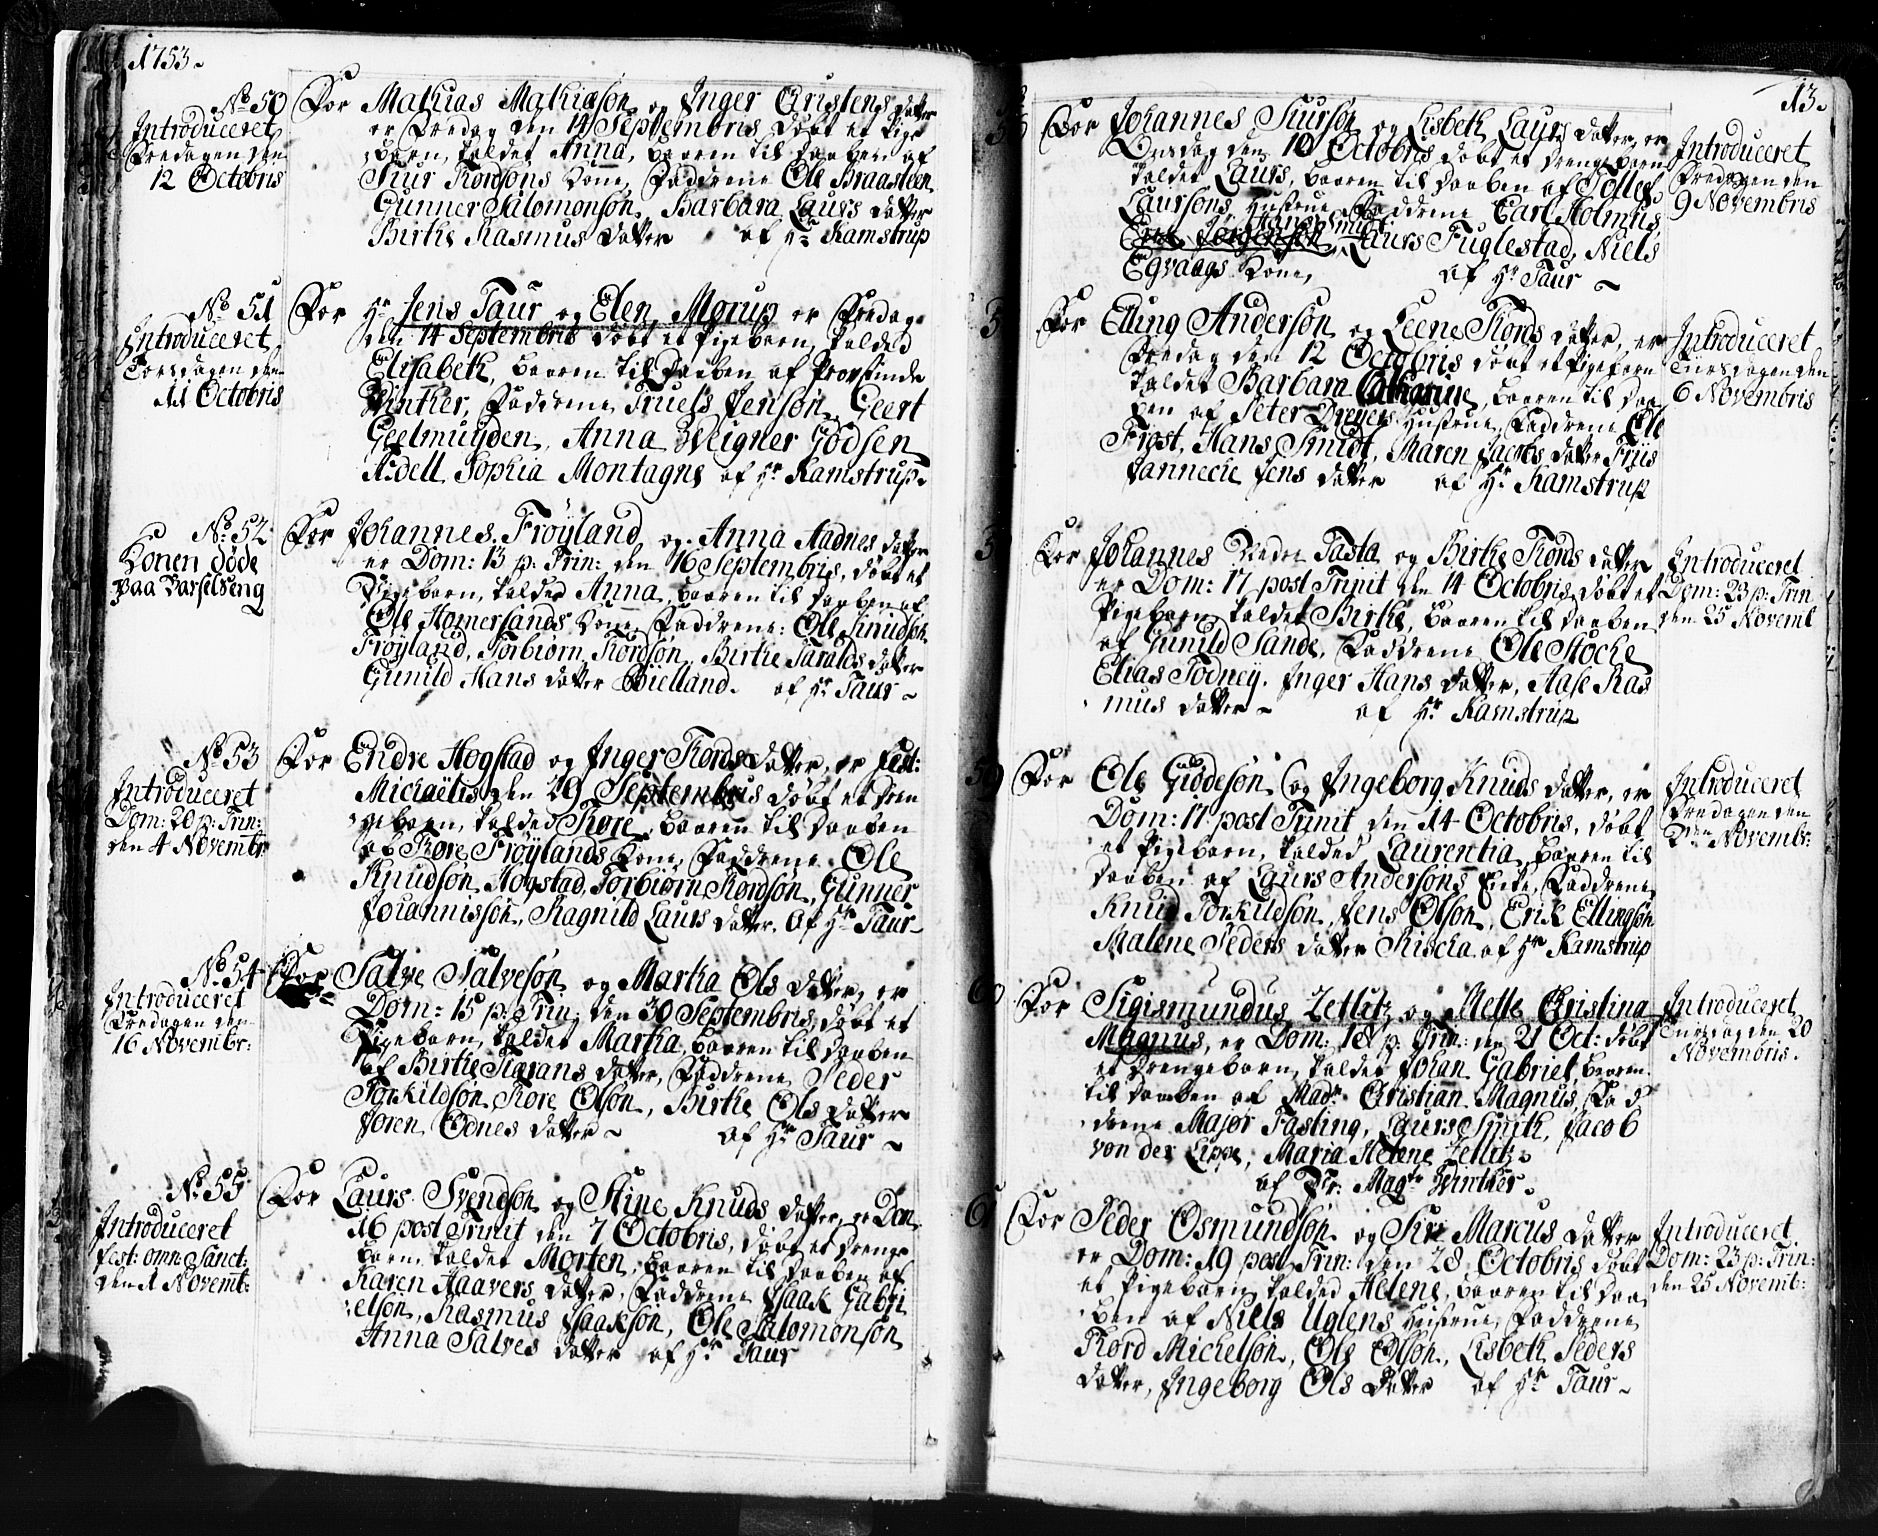 1753.
No 50
Introduceret
Fredagen den
12 Octobris
For Mathias Mathiæsøn og Inger Cristens datter
er Fredag den 14 Septembris døbt et Pige
barn, kaldet Anna, baaren til daaben af
Siur Tordsøns Kone, Faddrene Ole Braasteen
Gunner Salomonsøn, Barbara Laurs datter
Birthe Rasmus datter af Hr Kamstrup
No 51
Introduceret
Torsdagen den
11 Octobris
For Hr Jens Taur og Elen Morup er Fredag
den 14 Septembris døbt et Pigebarn, kalded
Elisabeth, baaren til Daaben af Provstinde
Winther, Faddrene Truels Jensøn, Geert
Geelmuyden, Anna Weigner Godsen
A:dell Sophia Montagne af Hr Kamstrup.
No: 52
Konen døde
paa Barselseng
For Johannes Frøyland og Anna Aadnes datter
er Dom: 13 p: Trin: den 16 Septembris, døbt et
Pigebarn, kalded Anna, baaren til daaben af
Ole Homersands Kone, Faddrene: Ole Knudsøn
Frøyland, Torbiørn Tordsøn, Birthe Taralds datter
Gunild Hans datter Bielland. af Hr Taur ~
No 53
Introduceret
Dom: 20 p: Trin:
den 4 Novembr
For Endre Hogstad og Inger Tords datter, er Fest:
Michaëlis den 29 Septembris døbt et Dren
gebarn, kalded Tore, baaren til daaben
af Tore Frøylands Kone, Faddrene. Ole
Knudsøn Hogstad, Torbiørn Tordsøn, Gunner
Johannissøn, Ragnild Laurs datter. Af Hr Taur ~
No. 54
Introduceret
Fredagen den
16 Novembr:
For Salve Salvesøn og Martha Ols datter, er
Dom: 15 p: Trin: den 30 Septembris, døbt et
Pigebarn, kaldet Martha, baaren til daaben
af Birthe Tarans datter, Faddrene Peder
Torkildsøn, Tore Olsøn, Birthe Ols datter
Joren Ednes datter ~ af Hr Taur ~
No. 55
Introduceret
Fest: omn: Sanct:
den 1 Novemt:
For Laurs Svendsøn og Stine Knuds datter, er Dom
16 post Trinit den 7 Octobris, døbt et Drenge
barn, kaldet Morten, baaren til daaben af
Karen Haavers datter, Faddrene Isaak Gabri
elsøn, Rasmus Isaaksøn, Ole Salomonsøn
Anna Salves datter af Hr Taur
13.
For Johannes Siursøn og Lisbeth Laurs datter, er
Onsdag den 10 Octobris døbt et drengebarn
kaldet Laurs, baaren til daaben af Tolleef
Laursøns Hustrue, Faddrene Carl Holmus
Hans Smidt
Laurs Fuglestad, Niels
Egvaags Kone, af Hr Taur ~
Introduceret
Fredagen den
9 Novembris
For Elling Andersøn og Leene Tords datter, er
Fredag den 12 Octobris døbt et Pigebarn
kaldet Barbara Catharine, baaren til Daa
ben af Peter Dreyers Hustrue, Faddrene Ole
Frost, Hans Smidt, Maren Jacobs datter Friis
Jannecie Jens datter af Hr Kamstrup
Introduceret
Tirsdagen den
6 Novembris
For Johannes Tasta og Birthe Tords datter
er Dom: 17 post Trinit den 14 Octobris, døbt et
Pigebarn kaldet Birthe, baaren til daaben
af Gunild Sande, Faddrene Ole Stocke
Elias Todney. Inger Hans datter, Aase Ras
mus datter ~ af Hr Kamstrup
Introduceret
Dom: 23 p: Trin
den 25 Novemt
59
For Ole Giddesøn og Ingeborg Knuds datter, er
Dom: 17 post Trinit den 14 Octobris, døbt
et Pigebarn, kalded Laurentia, baaren til
daaben af Laurs Andersøns Enke, Faddrene
Knud Torkildsøn, Jens Olsøn, Erik Ellingsøn
Malene Peders datter Kischa af Hr Kamstrup
Introduceret
Fredagen den
2den Novembr:
60
For Sigismundus Zetlitz og Mette Cristina
Magnus, er Dom: 18 p: Trin: den 21 Oct: døbt
et Drengebarn, kaldet Johan Gabriel, baaren
til daaben af Madm Cristian Magnus, Fad
drene Major Fasting, Laurs Smith, Jacob
von der Lippe, Maria Helene Zetlitz.
af Pr: Magtr Winther.
Introduceret
Tirsdag den 20
Novembris.
61
For Peder Osmundsøn og Siri Marcus datter
er Dom: 19 post Trin: den 28 Octobris døbt
et Pigebarn kalded Helene, baaren til Daa
ben af Niels Uglens Hustrue, Faddrene
Tord Michelsøn, Ole Olsøn, Lisbeth Peders
datter, Ingeborg Ols datter af Hr Taur ~
Introduceret
Dom: 23 p: Trin:
den 25 Novemt: